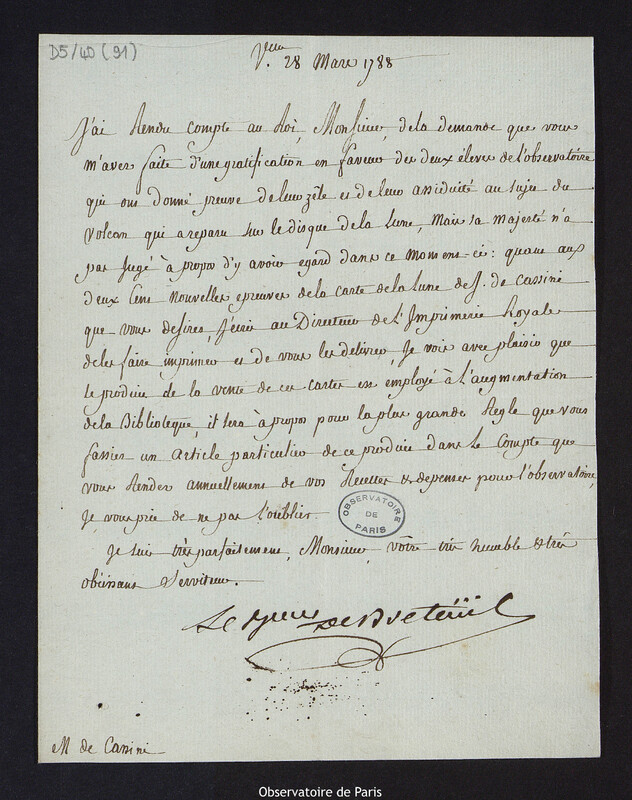 D5/40 (91)
V.lles 28 Mars 1788
J'ai Rendu compte au Roi, Monsieur, de la demande que vous
m'avez faite d'une gratification en faveur des deux élèves de l'observatoire
qui ont donné preuve de leur zêle et de leur assiduité au sujet du
volcan qui a reparu sur le disque de la Lune, Mais sa majesté n'a
pas Jugé à propos d'y avoir egard dans ce moment-ci: quant aux
deux Cens Nouvelles epreuves de la carte de la Lune de J. D. Cassini
que vous desirez, J'écris au Directeur de L'Imprimerie Royale
de les faire imprimer et de vous les délivrer, Je vois avec plaisir que
le produit de la vente de ces cartes est employé à L'augmentation
de la Biblioteque, il sera à propos pour la plus grande Regle que vous
fassiez un Article particulier de ce produit dans le Compte que
vous Rendez annuellement de vos Recettes & depenses pour l'observatoire,
Je vous prie de ne pas l'oublier.
Je suis très parfaitement, Monsieur, vôtre très humble & très
obéissant Serviteur.
Le Bon de Breteüil
M de Cassini
OBSERVATOIRE
DE
PARIS
Observatoire de Paris